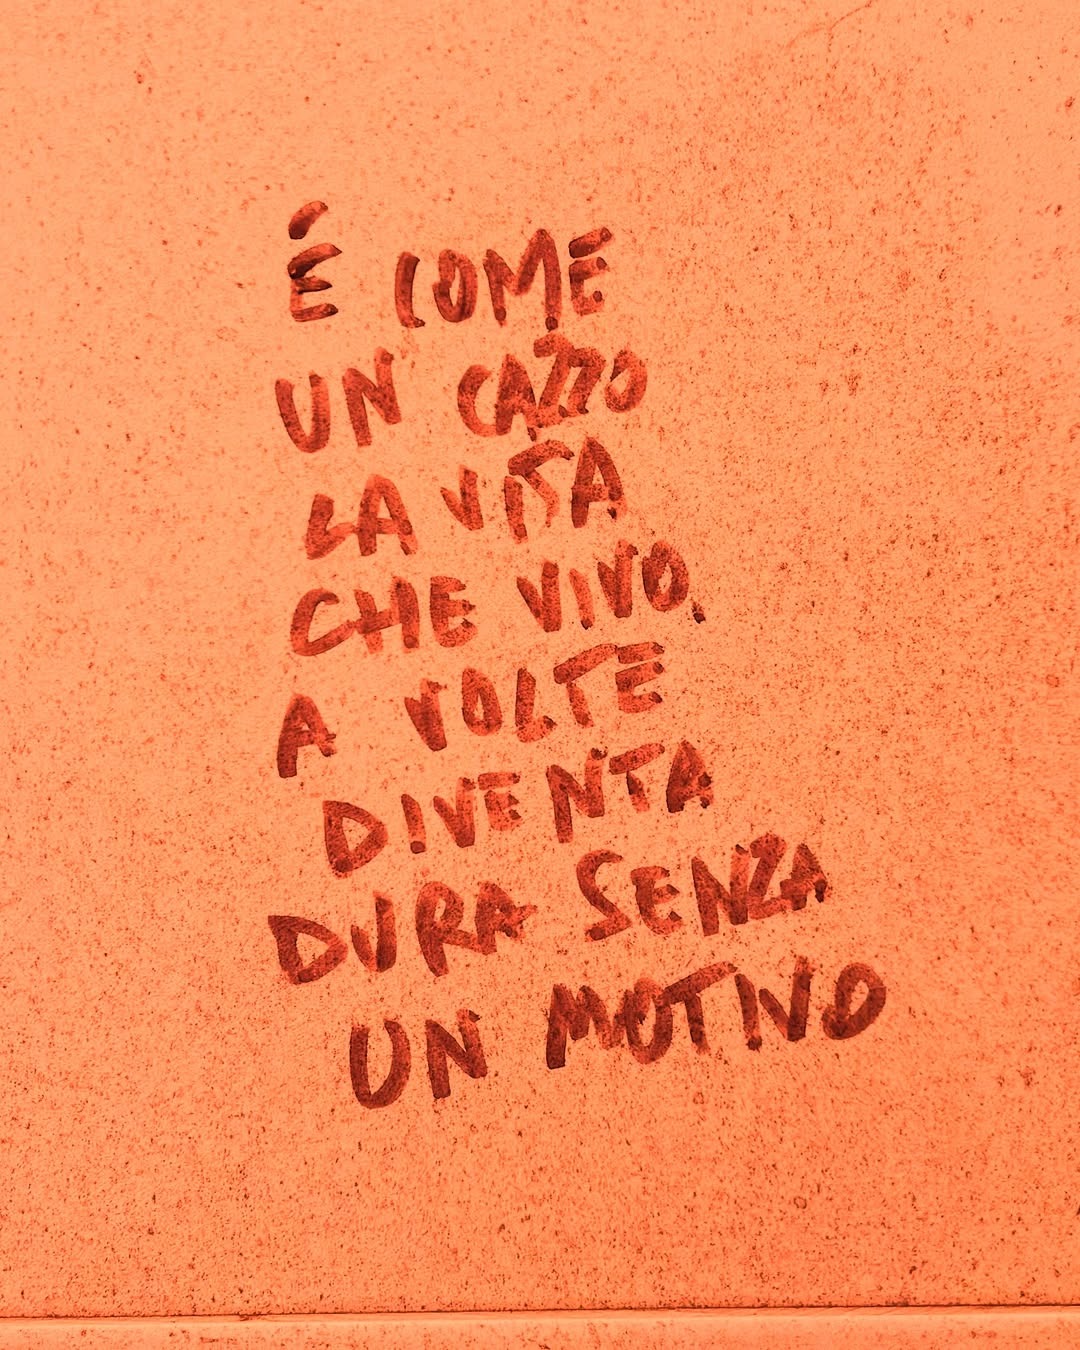 É COME
UN CAZZO
LA VITA
CHE VIVO,
A VOLTE
DIVENTA
DURA SENZA
UN MOTIVO